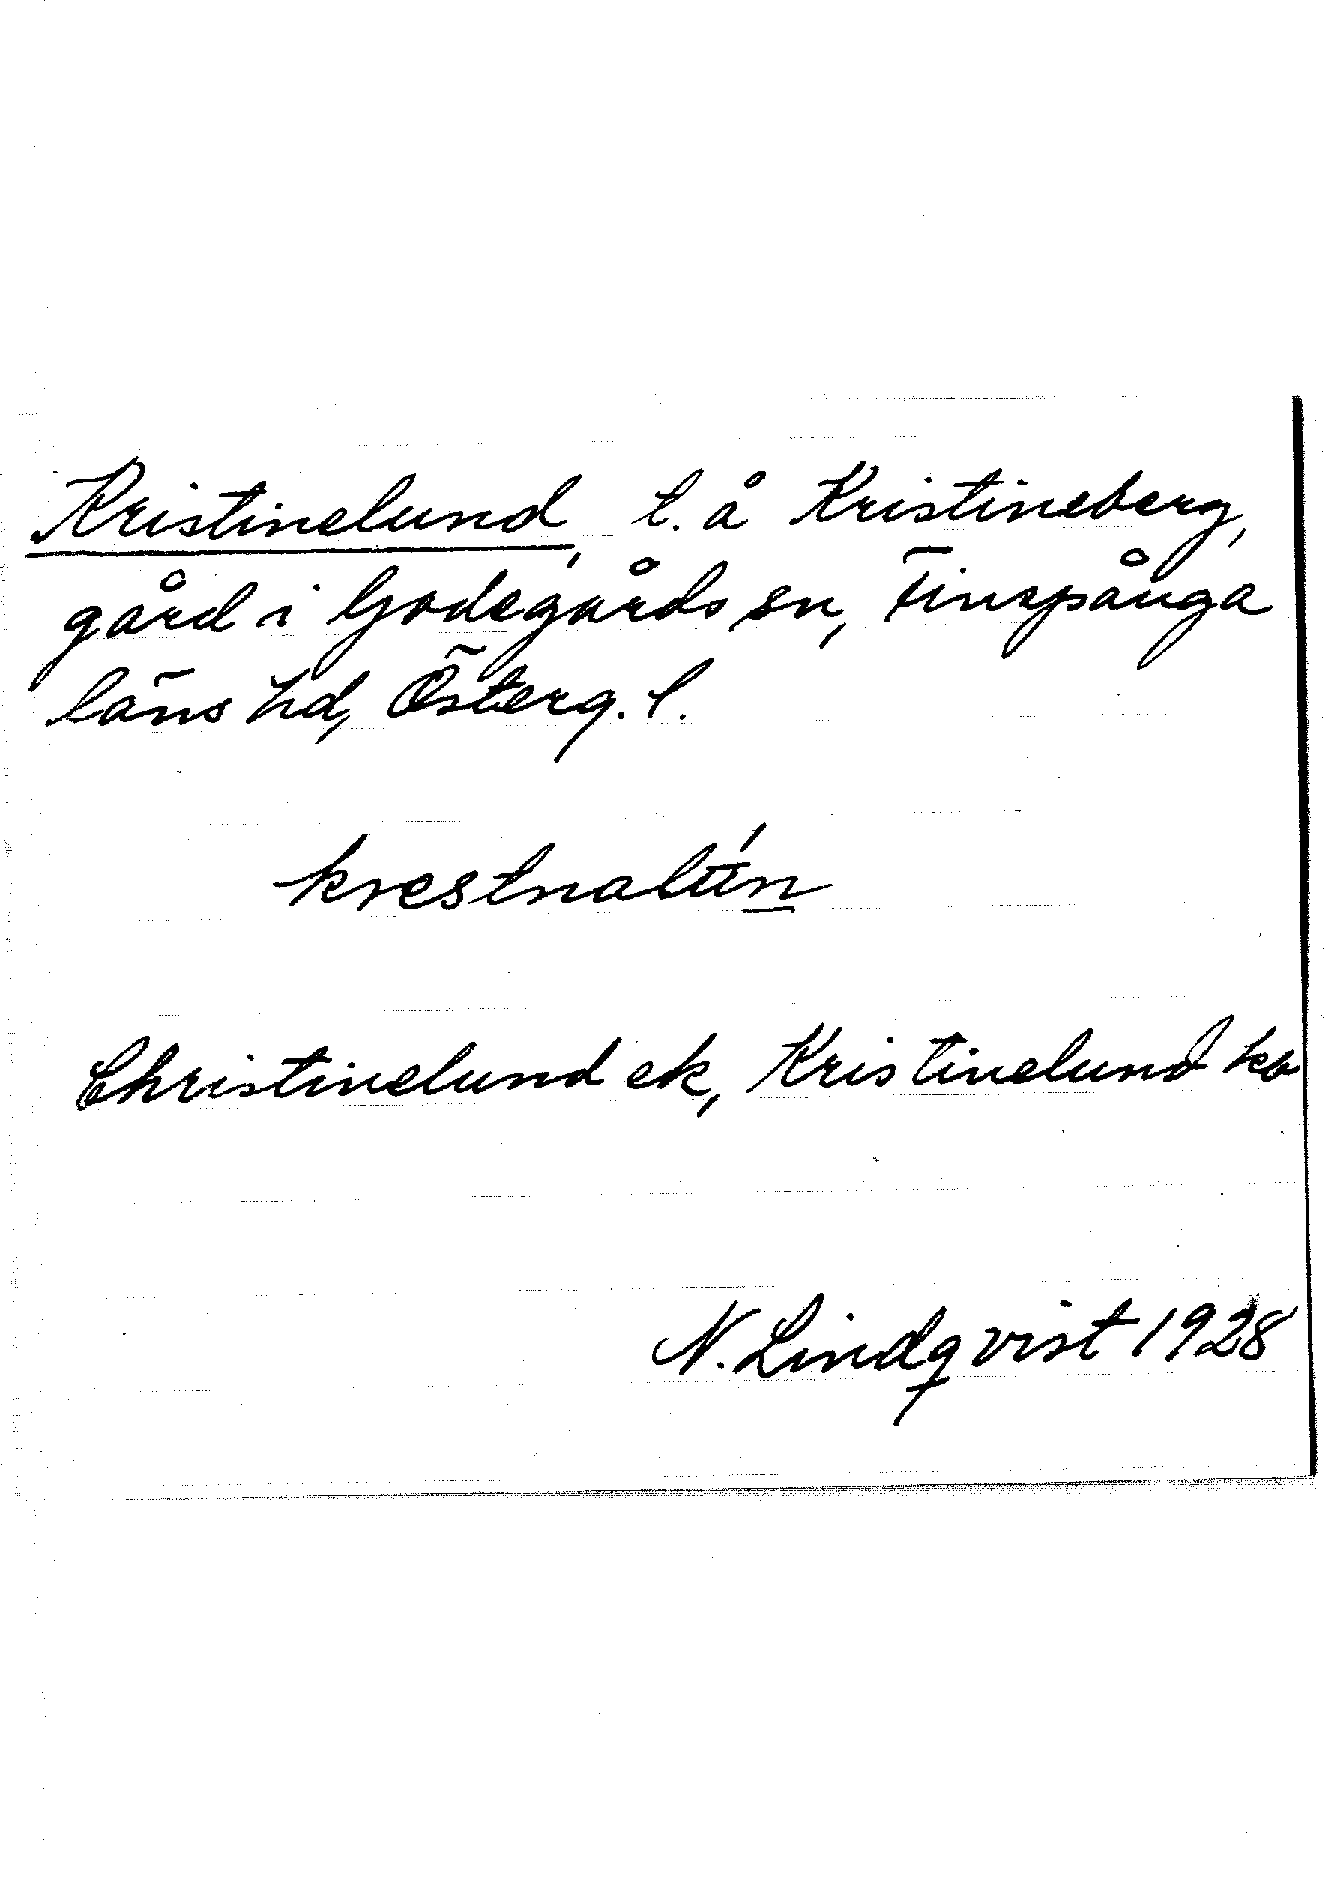 Kristinelund, t. å Kristineberg,
gård i Godegårds sn, Finspånga
läns hd, Österg. l.
krestnalún
Christinelund ek, Kristinelund kb
N. Lindqvist 1928